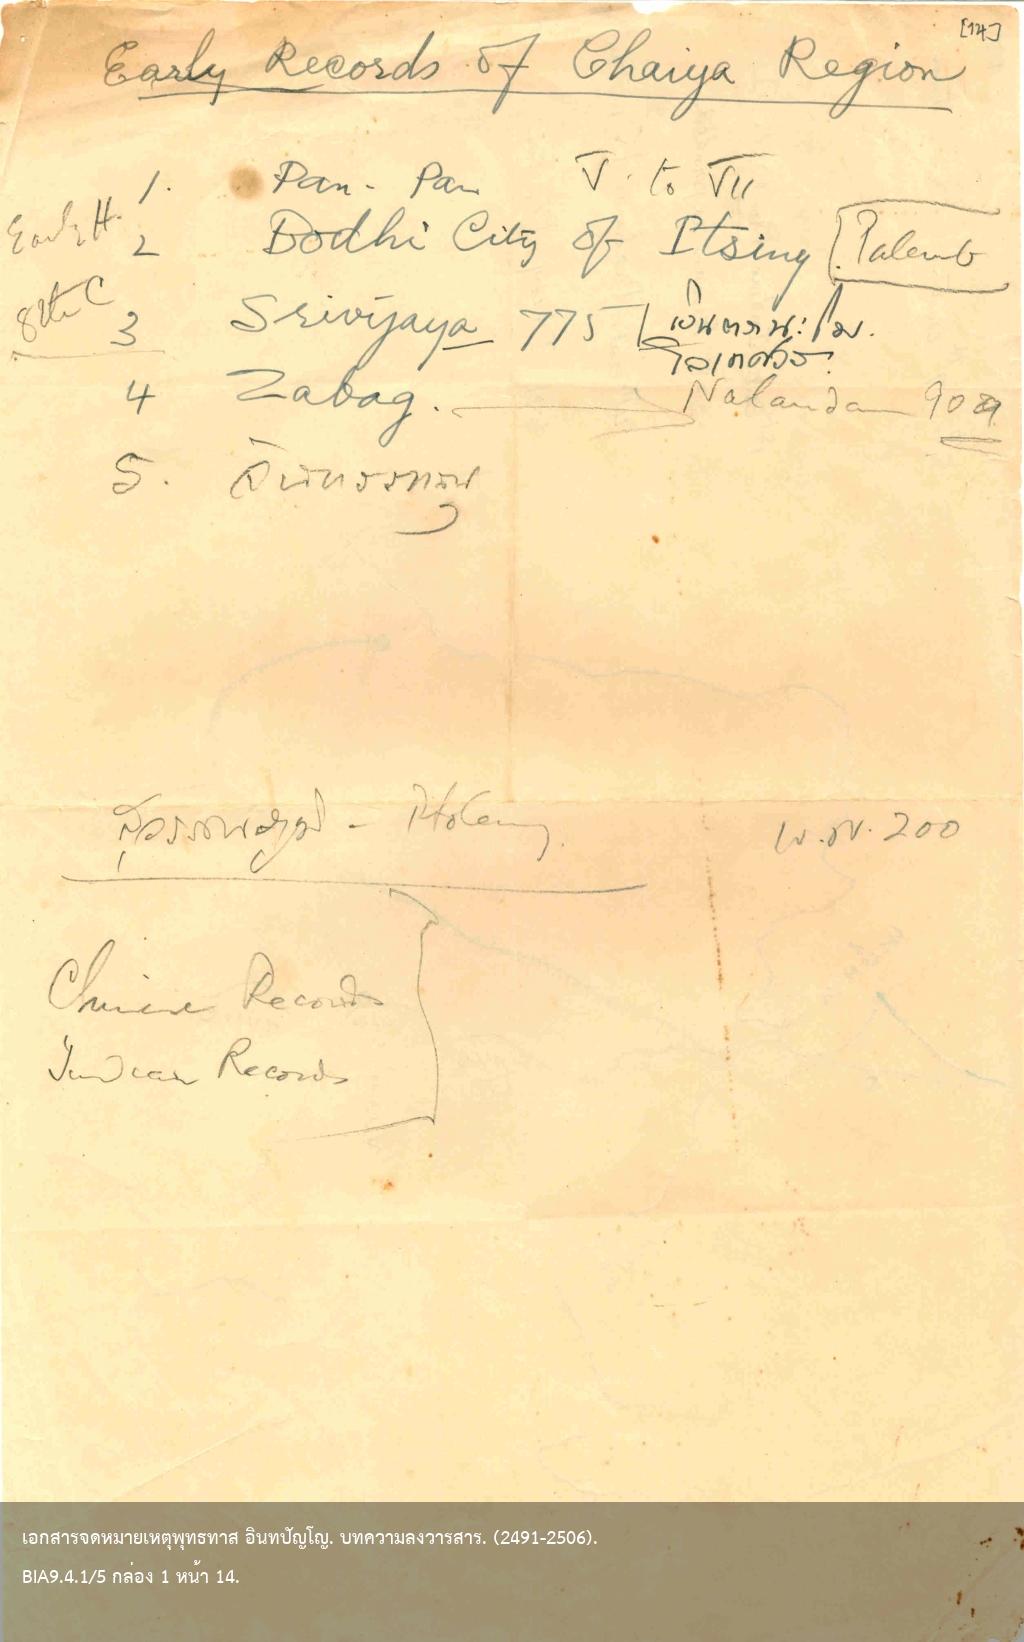 [14]
Early Records of Chaiya Region
1. Pan-Pan V to VII
Early H. 2 Bodhi City of Itsing [Palemb
8th C 3 Srivijaya 775
4 Zabag. Nalanda 90
5.
สุวรรณภูมิ - Ptolemy. พ.ศ. 200
Chinese Records
Indian Records
เอกสารจดหมายเหตุพุทธทาส อินทปัญโญ. บทความลงวารสาร. (2491-2506).
BIA9.4.1/5 กล่อง 1 หน้า 14.